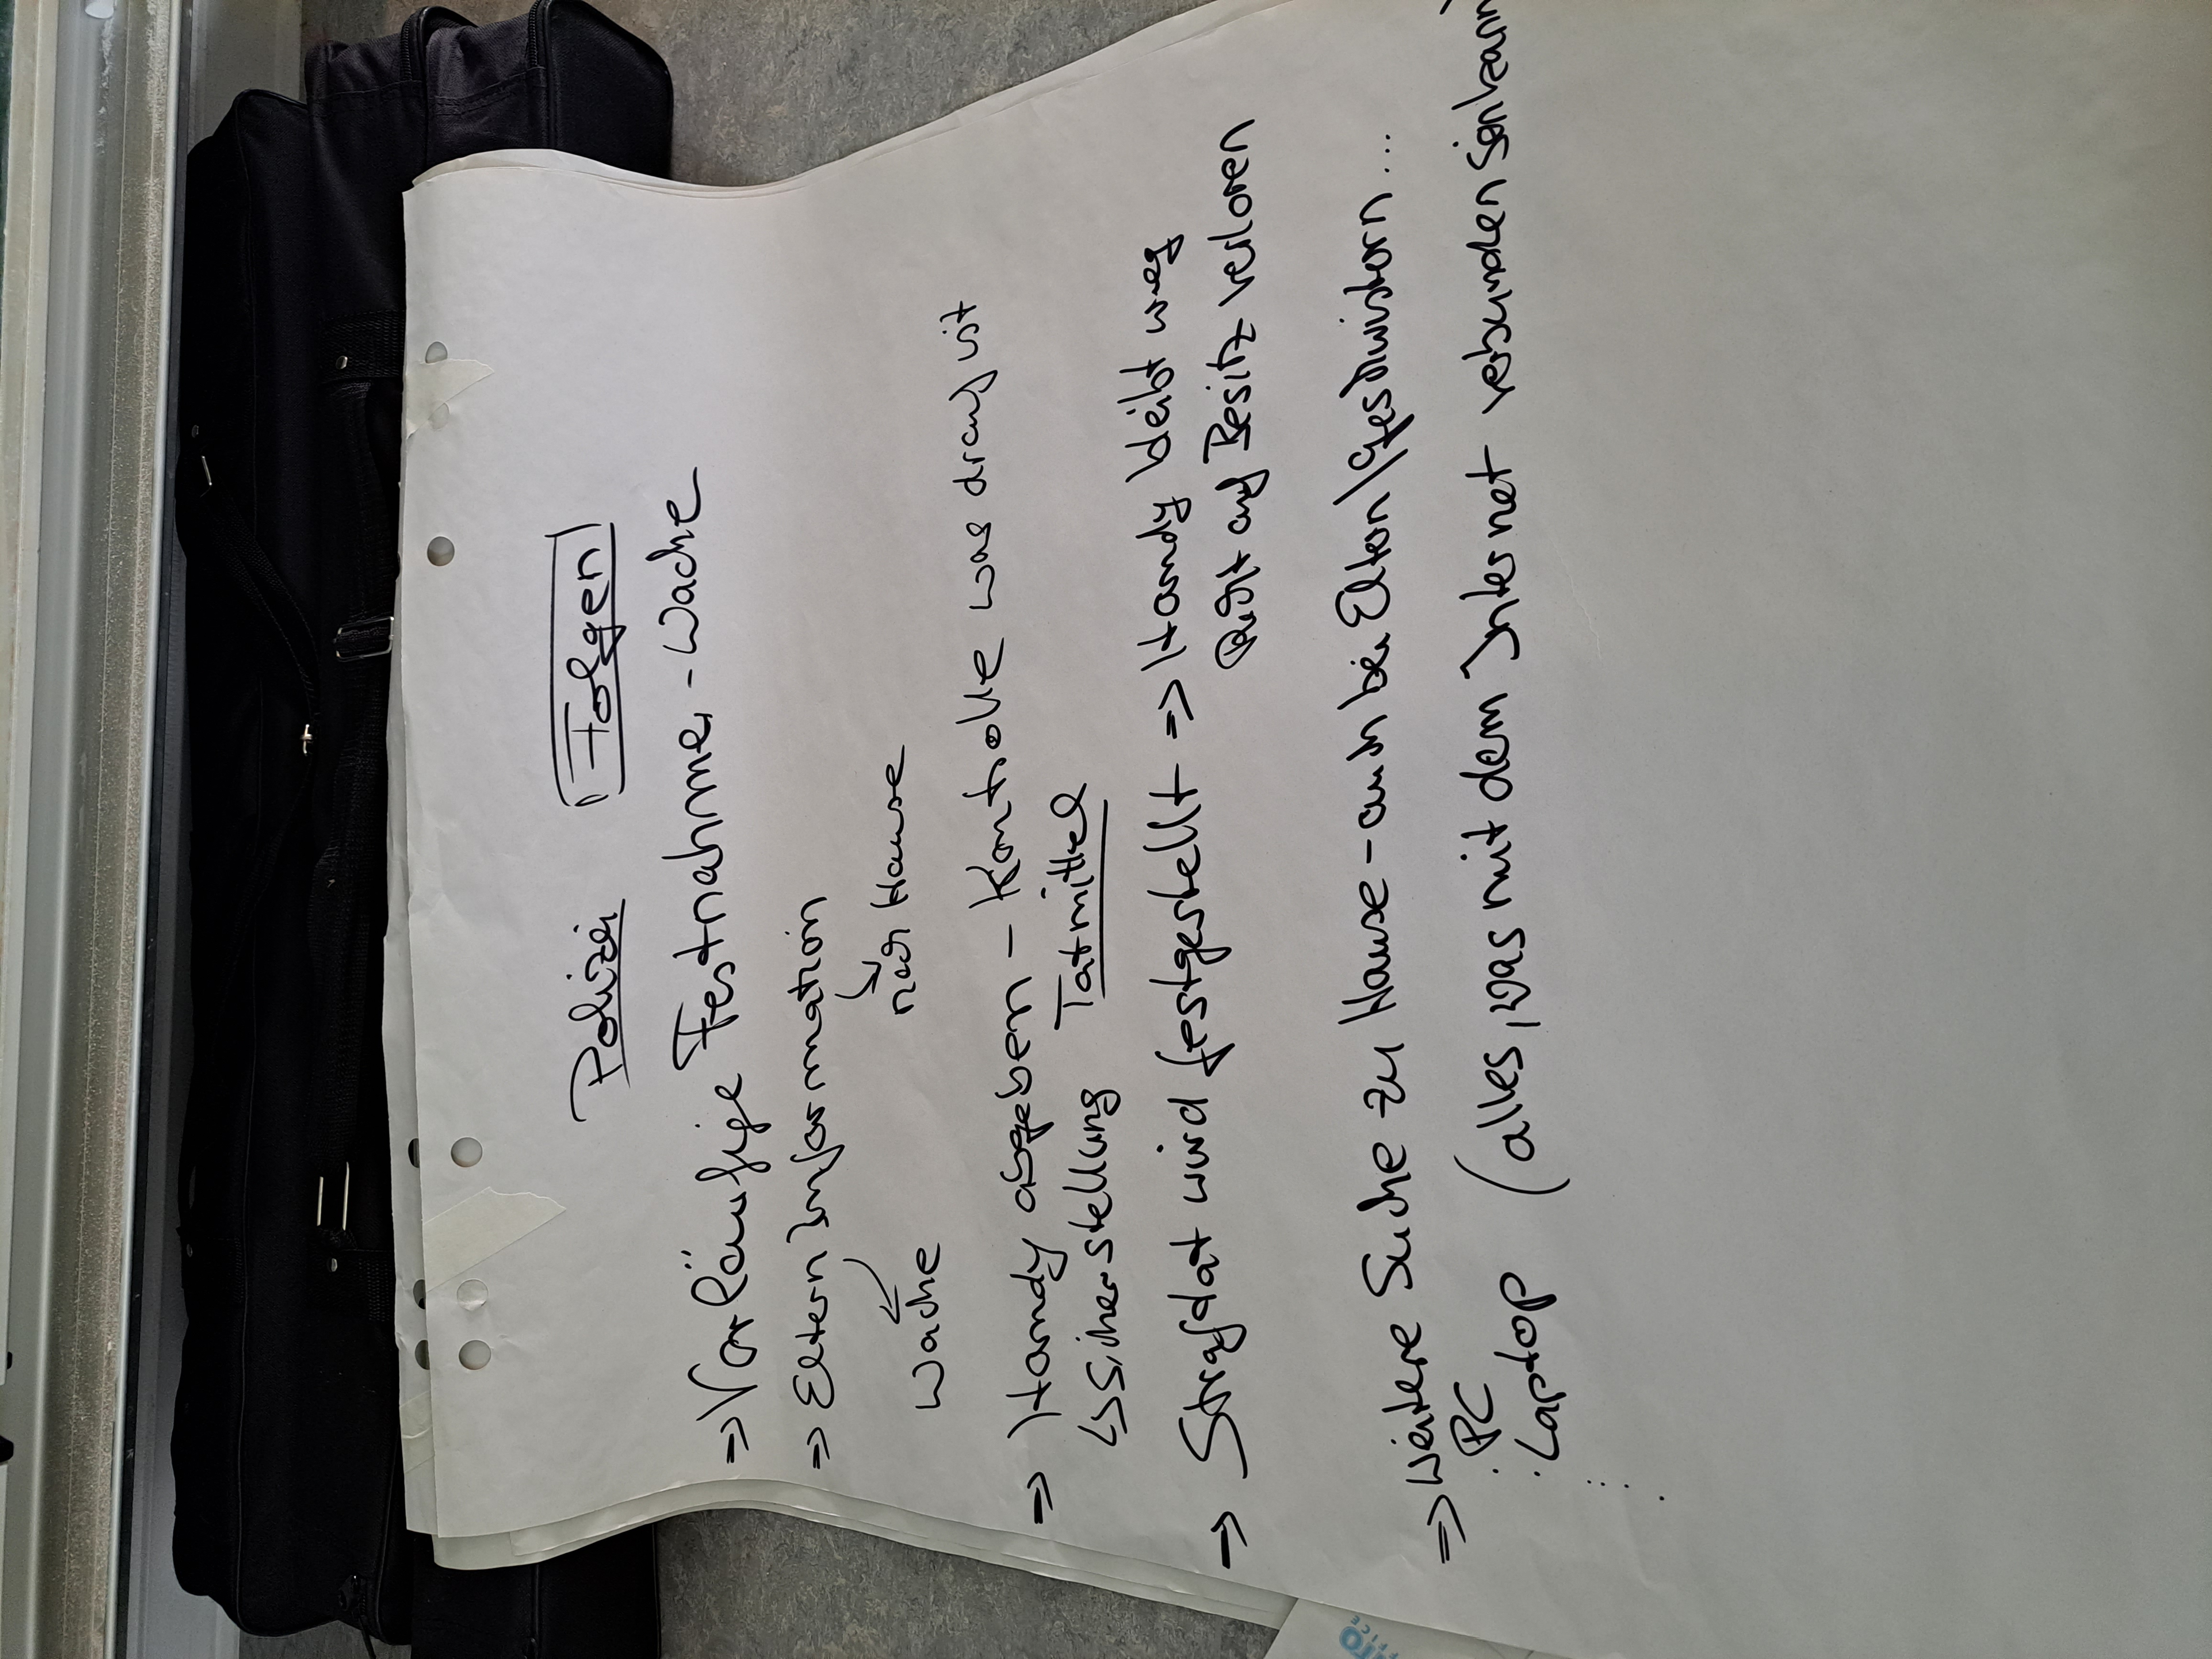 Polizei Folgen
⇒ Vorläufige Festnahme - Wache
⇒ Eltern Information
↙ ↘
Wache nach Hause
⇒ Handy abgeben - Kontrolle was drauf ist
↳ Sicherstellung Tatmittel
⇒ Strafdat wird festgestellt ⇒ Handy bleibt weg
Recht auf Besitz verloren
⇒ weitere Suche zu Hause - auch bei Eltern/Geschwistern...
· PC (alles, was mit dem Internet verbunden sein kann)
· Laptop